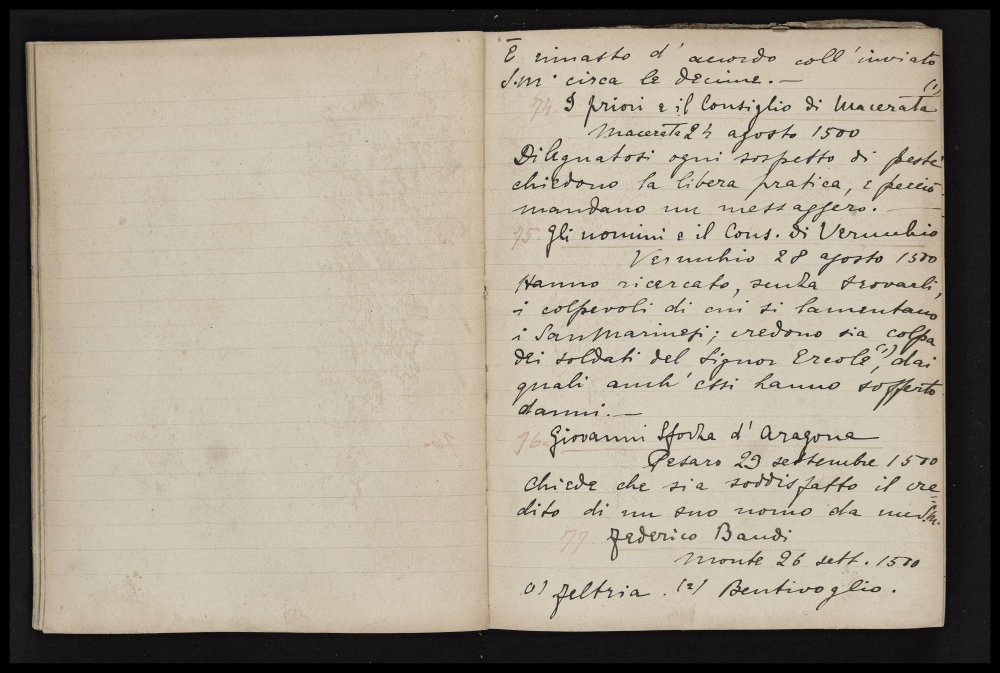 È rimasto d'accordo coll'inviato
S.M. circa le decime. —
(1)
74. I priori e il Consiglio di Macerata
Macerata 24 agosto 1500
Dileguatosi ogni sospetto di peste
chiedono la libera pratica, e perciò
mandano un messaggero. —
75. Gli uomini e il Cons. di Verucchio
Verucchio 28 agosto 1500
Hanno ricercato, senza trovarli,
i colpevoli di cui si lamentano
i San Marinesi; credono sia colpa
dei soldati del Signor Ercole (2), dai
quali anch'essi hanno sofferto
danni. —
76. Giovanni Sforza d'Aragona
Pesaro 29 settembre 1500
Chiede che sia soddisfatto il cre=
dito di un suo uomo da un S.M.
77. Federico Bandi
Monte 26 sett. 1500
(1) Feltria. (2) Bentivoglio.